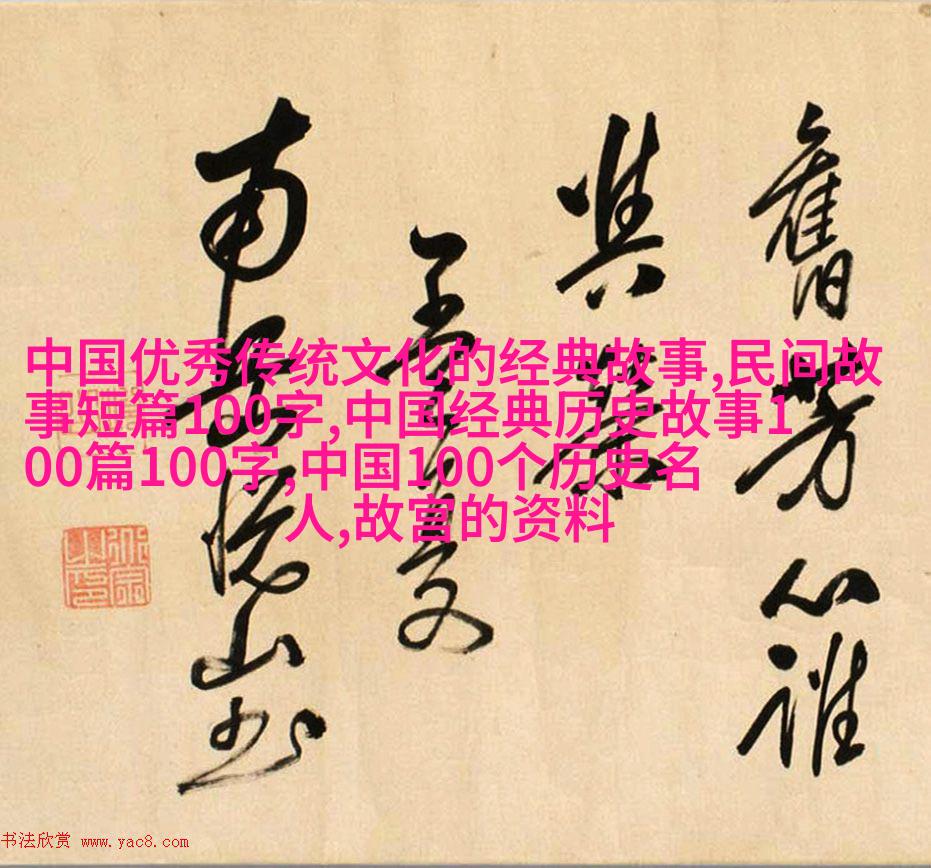 舊芳心誰
南岳悦山书
中国优秀传统文化的经典故事,民间故
事短篇100字,中国经典历史故事1
00篇100字,中国100个历史名
人,故宫的资料
书法欣赏 www.yac8.com